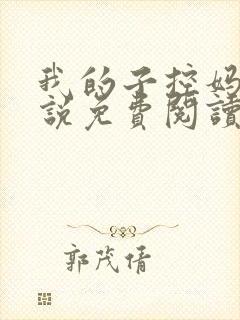 我的子控妈
說免費閱讀
郭茂倩